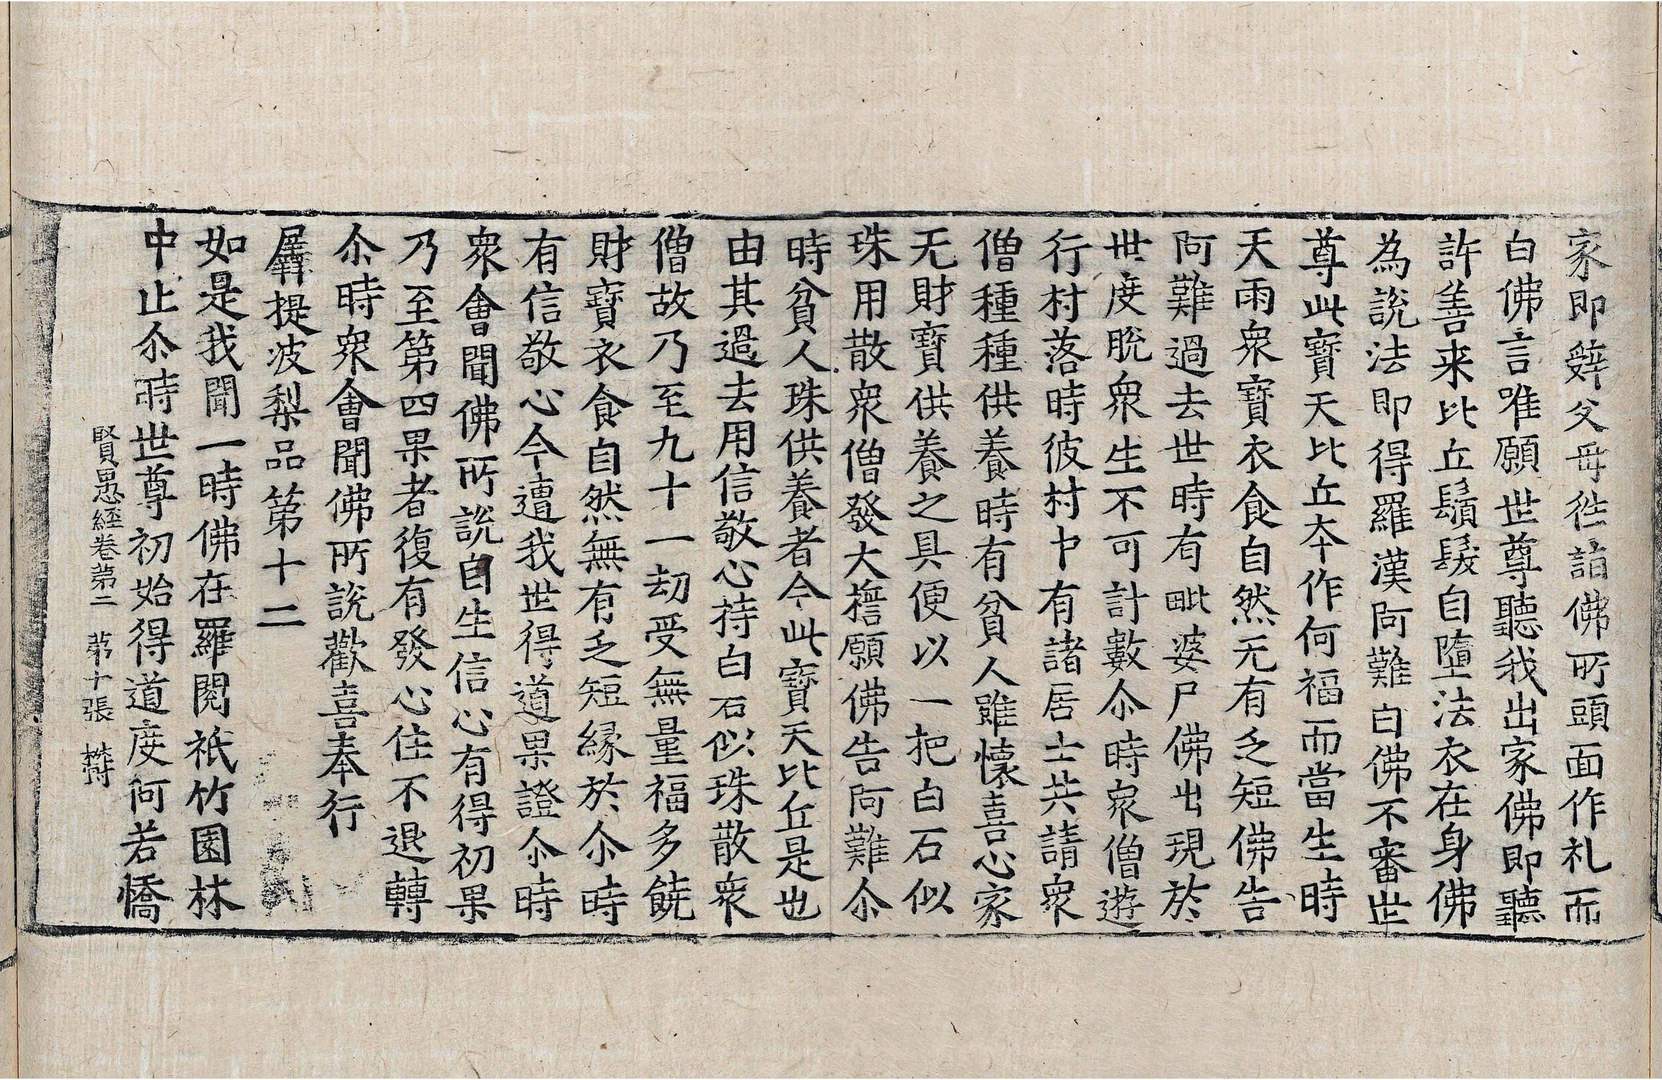 家即辝父母徃詣佛所頭面作礼而
白佛言唯願世尊聽我出家佛即聽
許善来比丘鬚髮自墮法衣在身佛
為說法即得羅漢阿難白佛不審世
尊此寳天比丘夲作何福而當生時
天雨衆寳衣食自然无有乏短佛告
阿難過去世時有毗婆尸佛出現於
世度脫衆生不可計數尒時衆僧遊
行村落時彼村中有諸居士共請衆
僧種種供養時有貧人雖懷喜心家
无財寳供養之具便以一把白石似
珠用散衆僧發大擔願佛告阿難尒
時貧人珠供養者今此寳天比丘是也
由其過去用信敬心持白石似珠散衆
僧故乃至九十一劫受無量福多饒
財寳衣食自然無有乏短緣於尒時
有信敬心今遭我世得道果證尒時
衆會聞佛所說自生信心有得初果
乃至第四果者復有發心住不退轉
尒時衆會聞佛所說歡喜奉行
羼提波梨品第十二
如是我聞一時佛在羅閱祇竹園林
中止尒時世尊初始得道度阿若憍
賢愚經卷第二 第十張